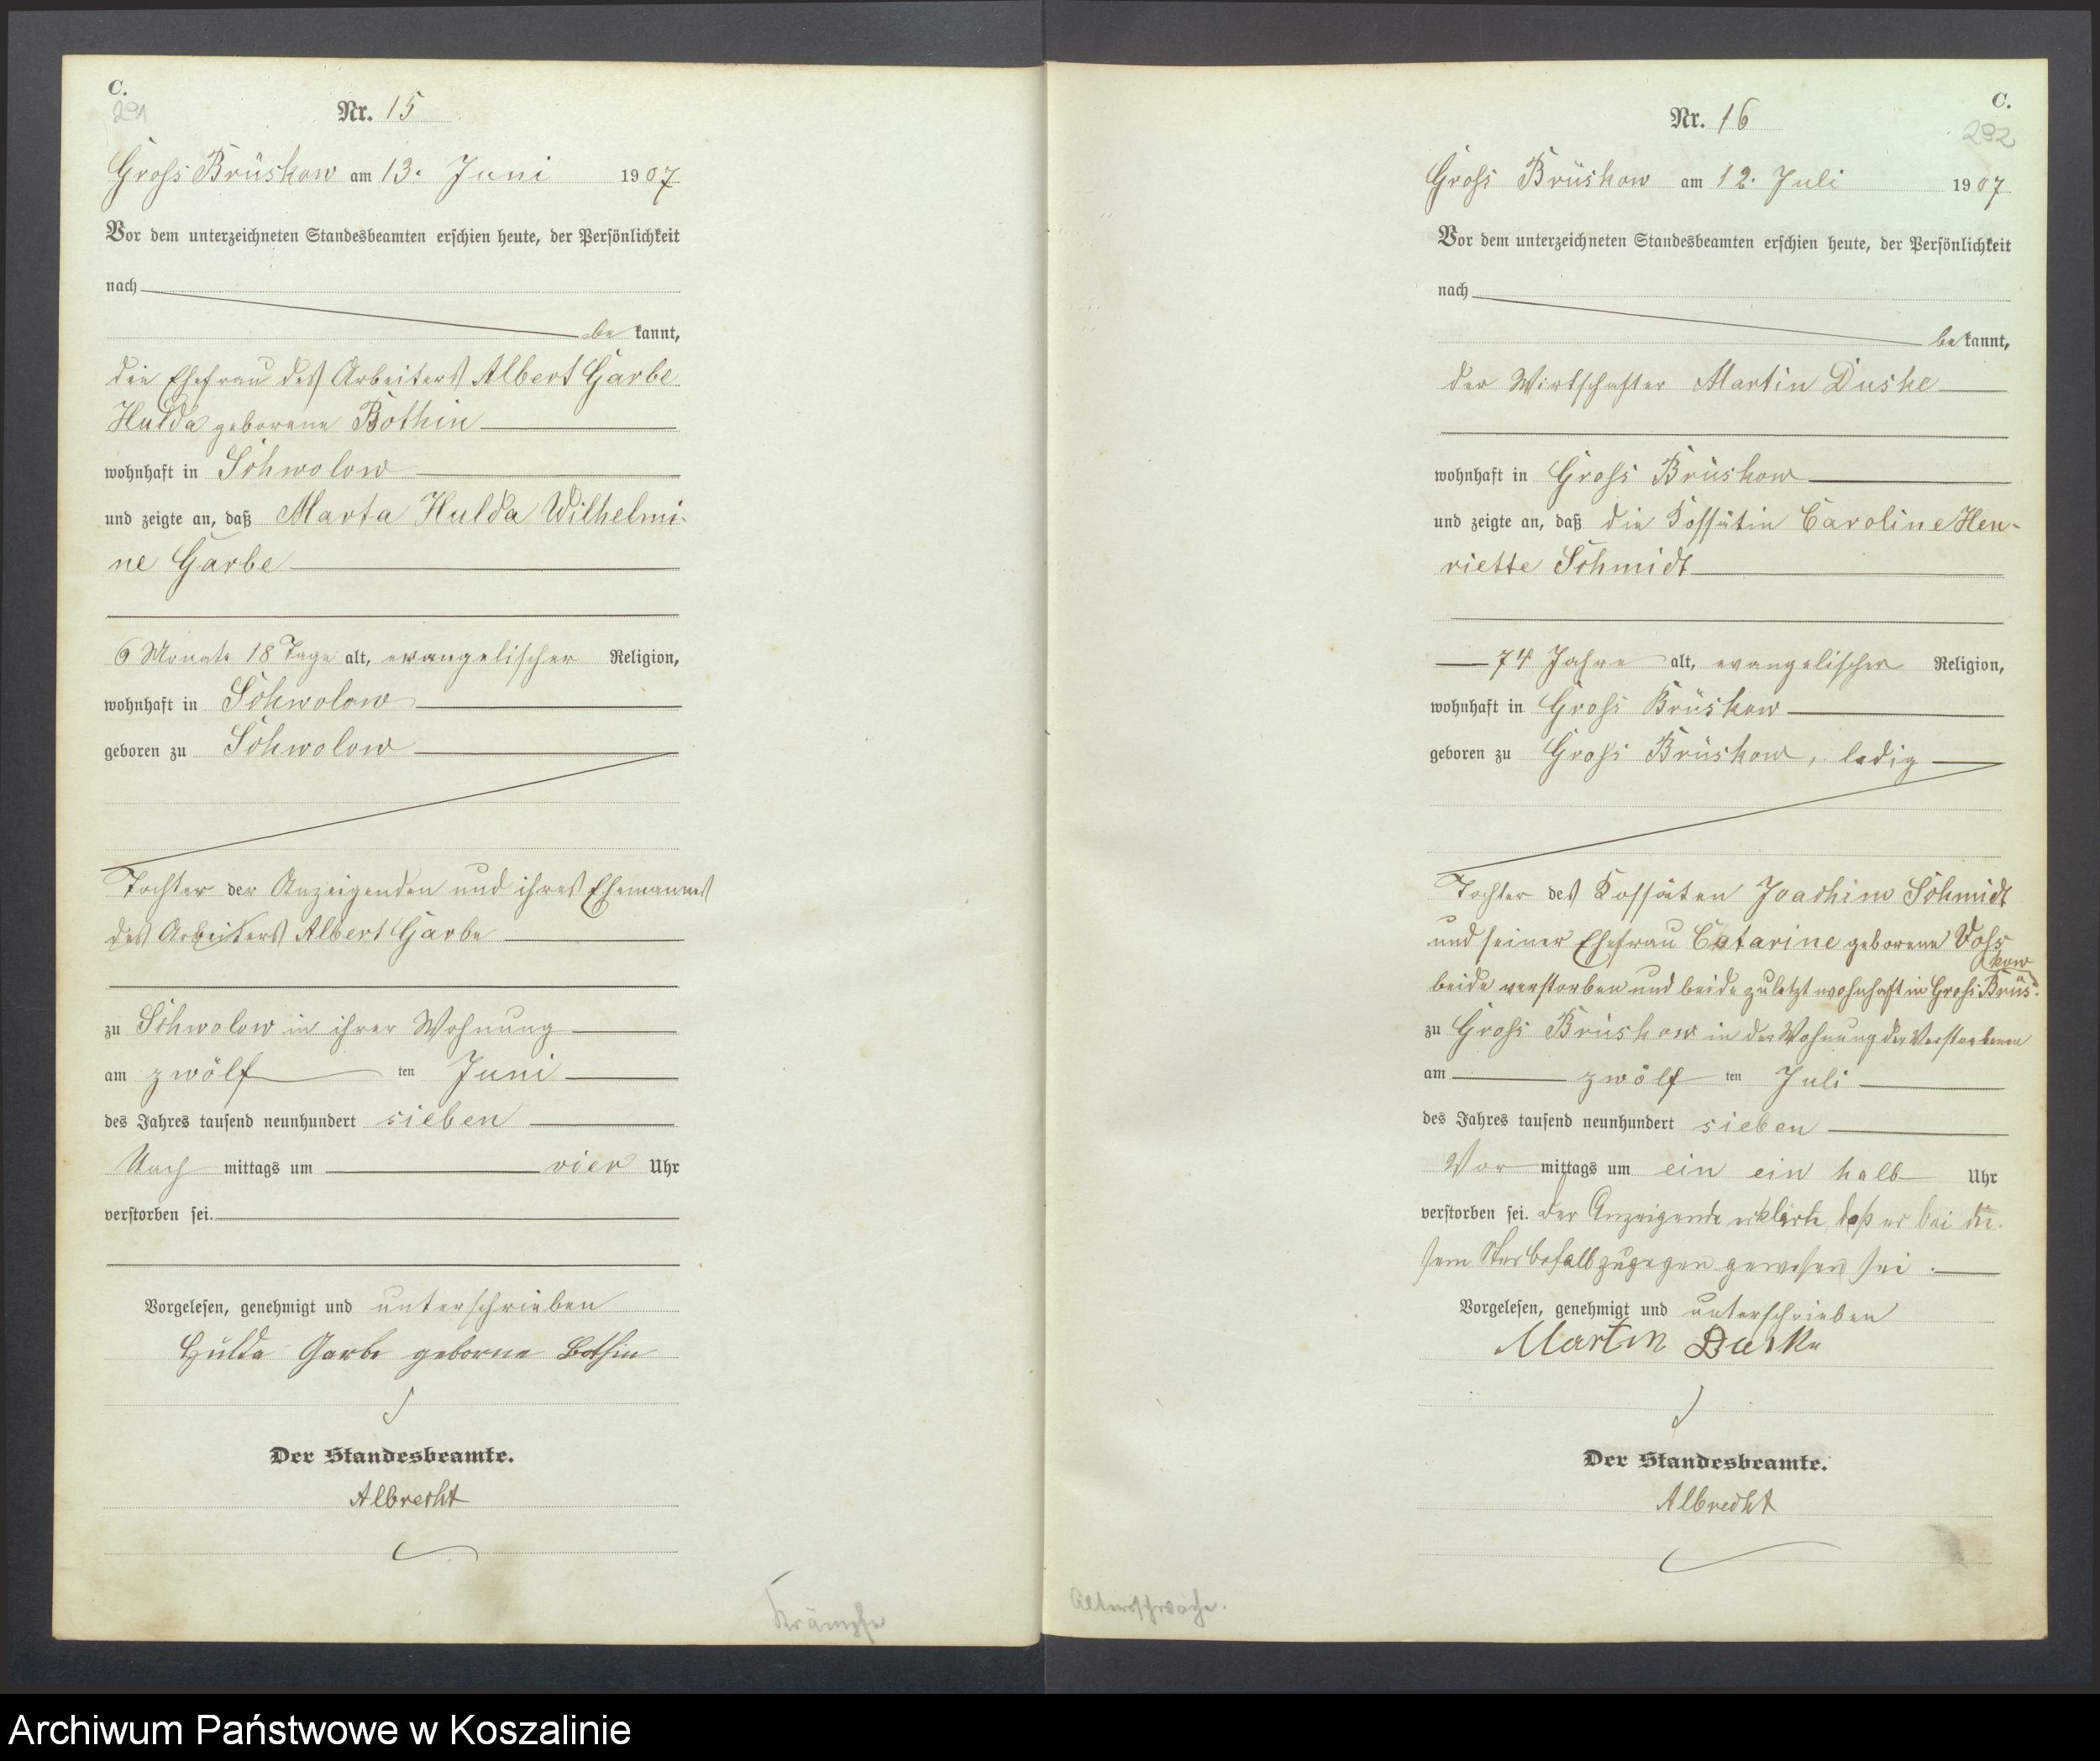 C.
291
Nr. 15
Gross Brüskow am 13. Juni 1907
Vor dem unterzeichneten Standesbeamten erschien heute, der Persönlichkeit
nach
be kannt,
die Ehefrau des Arbeiters Albert Garbe
Hulda geborene Bothin
wohnhaft in Schwolow
und zeigte an, daß Marta Hulda Wilhelmi-
ne Garbe
6 Monate 18 Tage alt, evangelischer Religion,
wohnhaft in Schwolow
geboren zu Schwolow
Tochter der Anzeigenden und ihres Ehemannes
des Arbeiters Albert Garbe
zu Schwolow in ihrer Wohnung
am zwölf ten Juni
des Jahres tausend neunhundert sieben
Nach mittags um vier Uhr
verstorben sei.
Vorgelesen, genehmigt und unterschrieben
Hulda Garbe geborne Bothin
Der Standesbeamte.
Albrecht
Krämpfe
C.
292
Nr. 16
Gross Brüskow am 12. Juli 1907
Vor dem unterzeichneten Standesbeamten erschien heute, der Persönlichkeit
nach
be kannt,
der Wirtschafter Martin Duske
wohnhaft in Gross Brüskow
und zeigte an, daß die Kossätin Caroline Hen-
riette Schmidt
74 Jahre alt, evangelischer Religion,
wohnhaft in Gross Brüskow
geboren zu Gross Brüskow, ledig
Tochter des Kossäten Joachim Schmidt
und seiner Ehefrau Catarine geborene Voss
beide verstorben und beide zuletzt wohnhaft in Gross Brüs-
kow
zu Gross Brüskow in der Wohnung der Verstorbenen
am zwölf ten Juli
des Jahres tausend neunhundert sieben
Vor mittags um ein ein halb Uhr
verstorben sei. Der Anzeigende erklärte, daß er bei die-
sem Sterbefall zugegen gewesen sei.
Vorgelesen, genehmigt und unterschrieben
Martin Duske
Der Standesbeamte.
Albrecht
Altersschwäche.
Archiwum Państwowe w Koszalinie